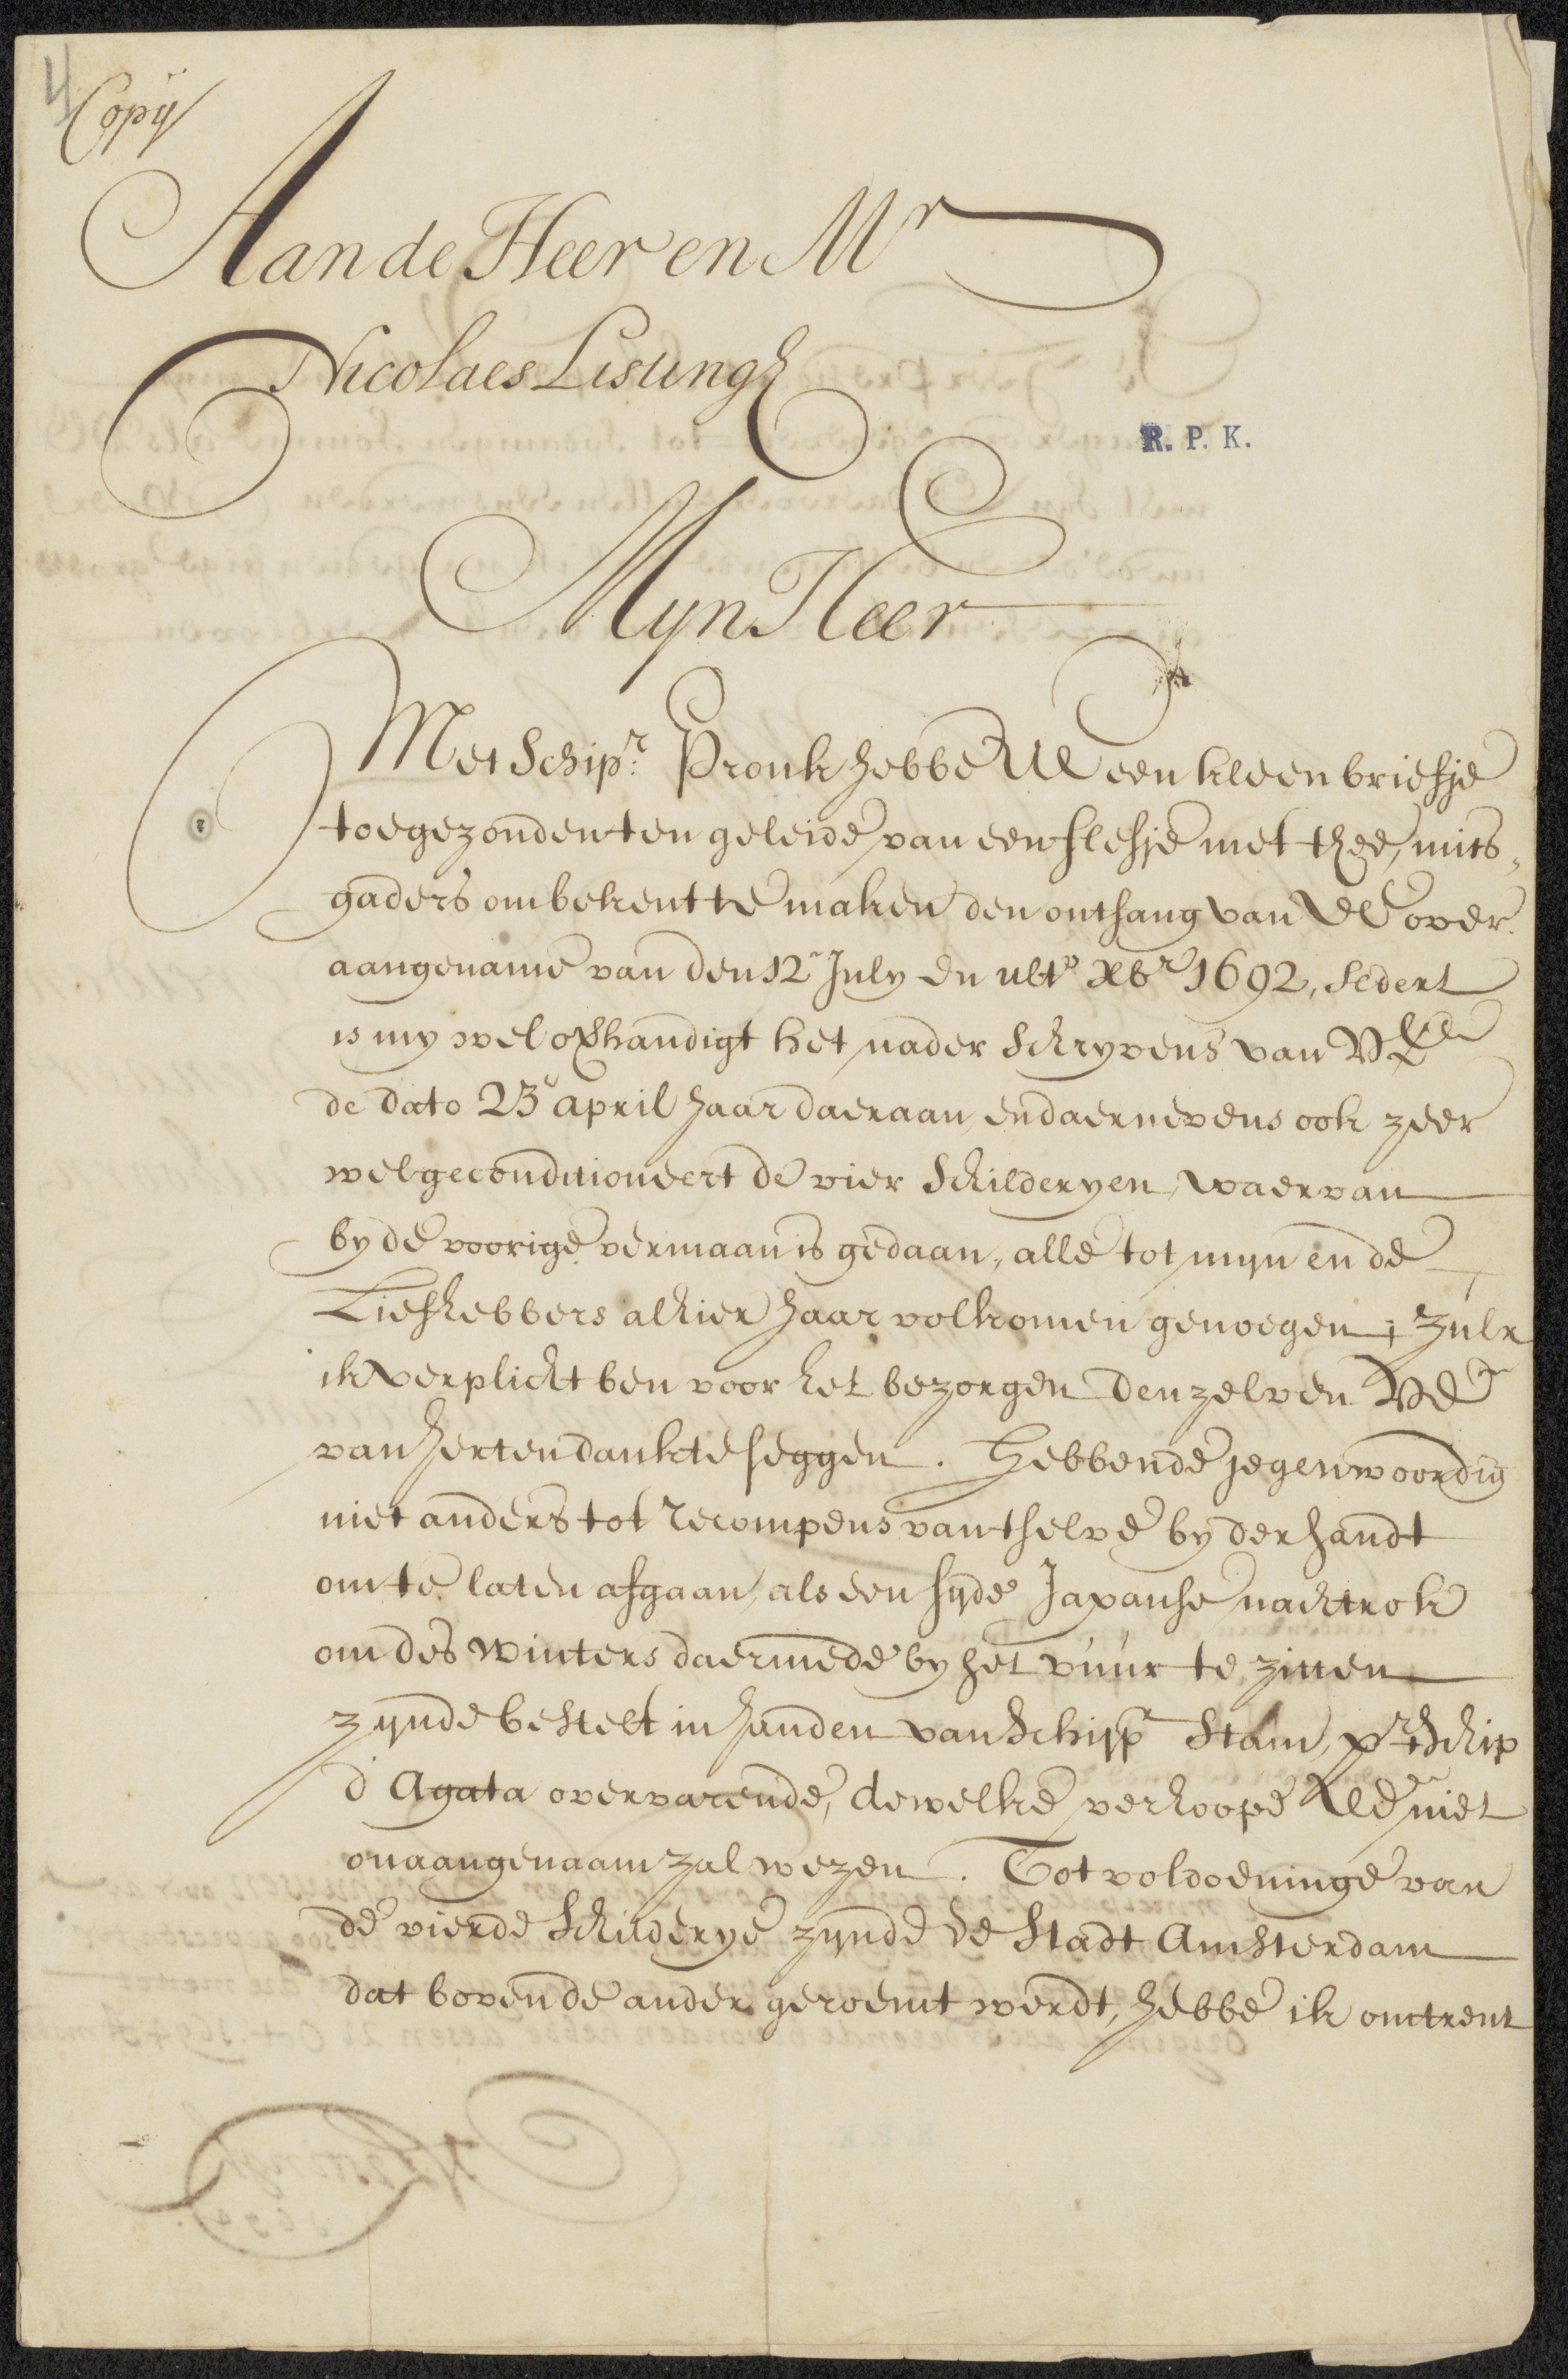 4
Copij
Aan de Heer en Mr
Nicolaes Listingh
R. P. K.
Myn Heer
Met Schipr: Pronk hebbe UE een kleen briefje
toegezonden ten geleide van een flesje met thee, mits-
gaders om bekent te maken den ontfang van UE over-
aangename van den 12e July en ulto Xbr 1692, sedert
is my wel overhandigt het nader schryvens van UE
de dato 23e april haar daeraan, en daernevens ook zeer
welgeconditioneert de vier Schilderyen, waervan
by de voorige vermaan is gedaan, alle tot myn en de
Liefhebbers alhier haar volkomen genoegen; zulx
ik verplicht ben voor het bezorgen denzelven UE
van herten dank te seggen. Hebbende jegenwoordig
niet anders tot recompens van 't selve by der handt
om te laten afgaan, als een syde Japanse nachtrok
om des winters daermede by het vuur te zitten
zynde bestelt in handen van Schippr Stam, pr 't Schip
d' Agata overvarende, dewelke verhoope UE niet
onaangenaam zal wezen. Tot voldoeninge van
de vierde Schilderye zynde de Stadt Amsterdam
dat boven de ander geroemt werdt, hebbe ik omtrent